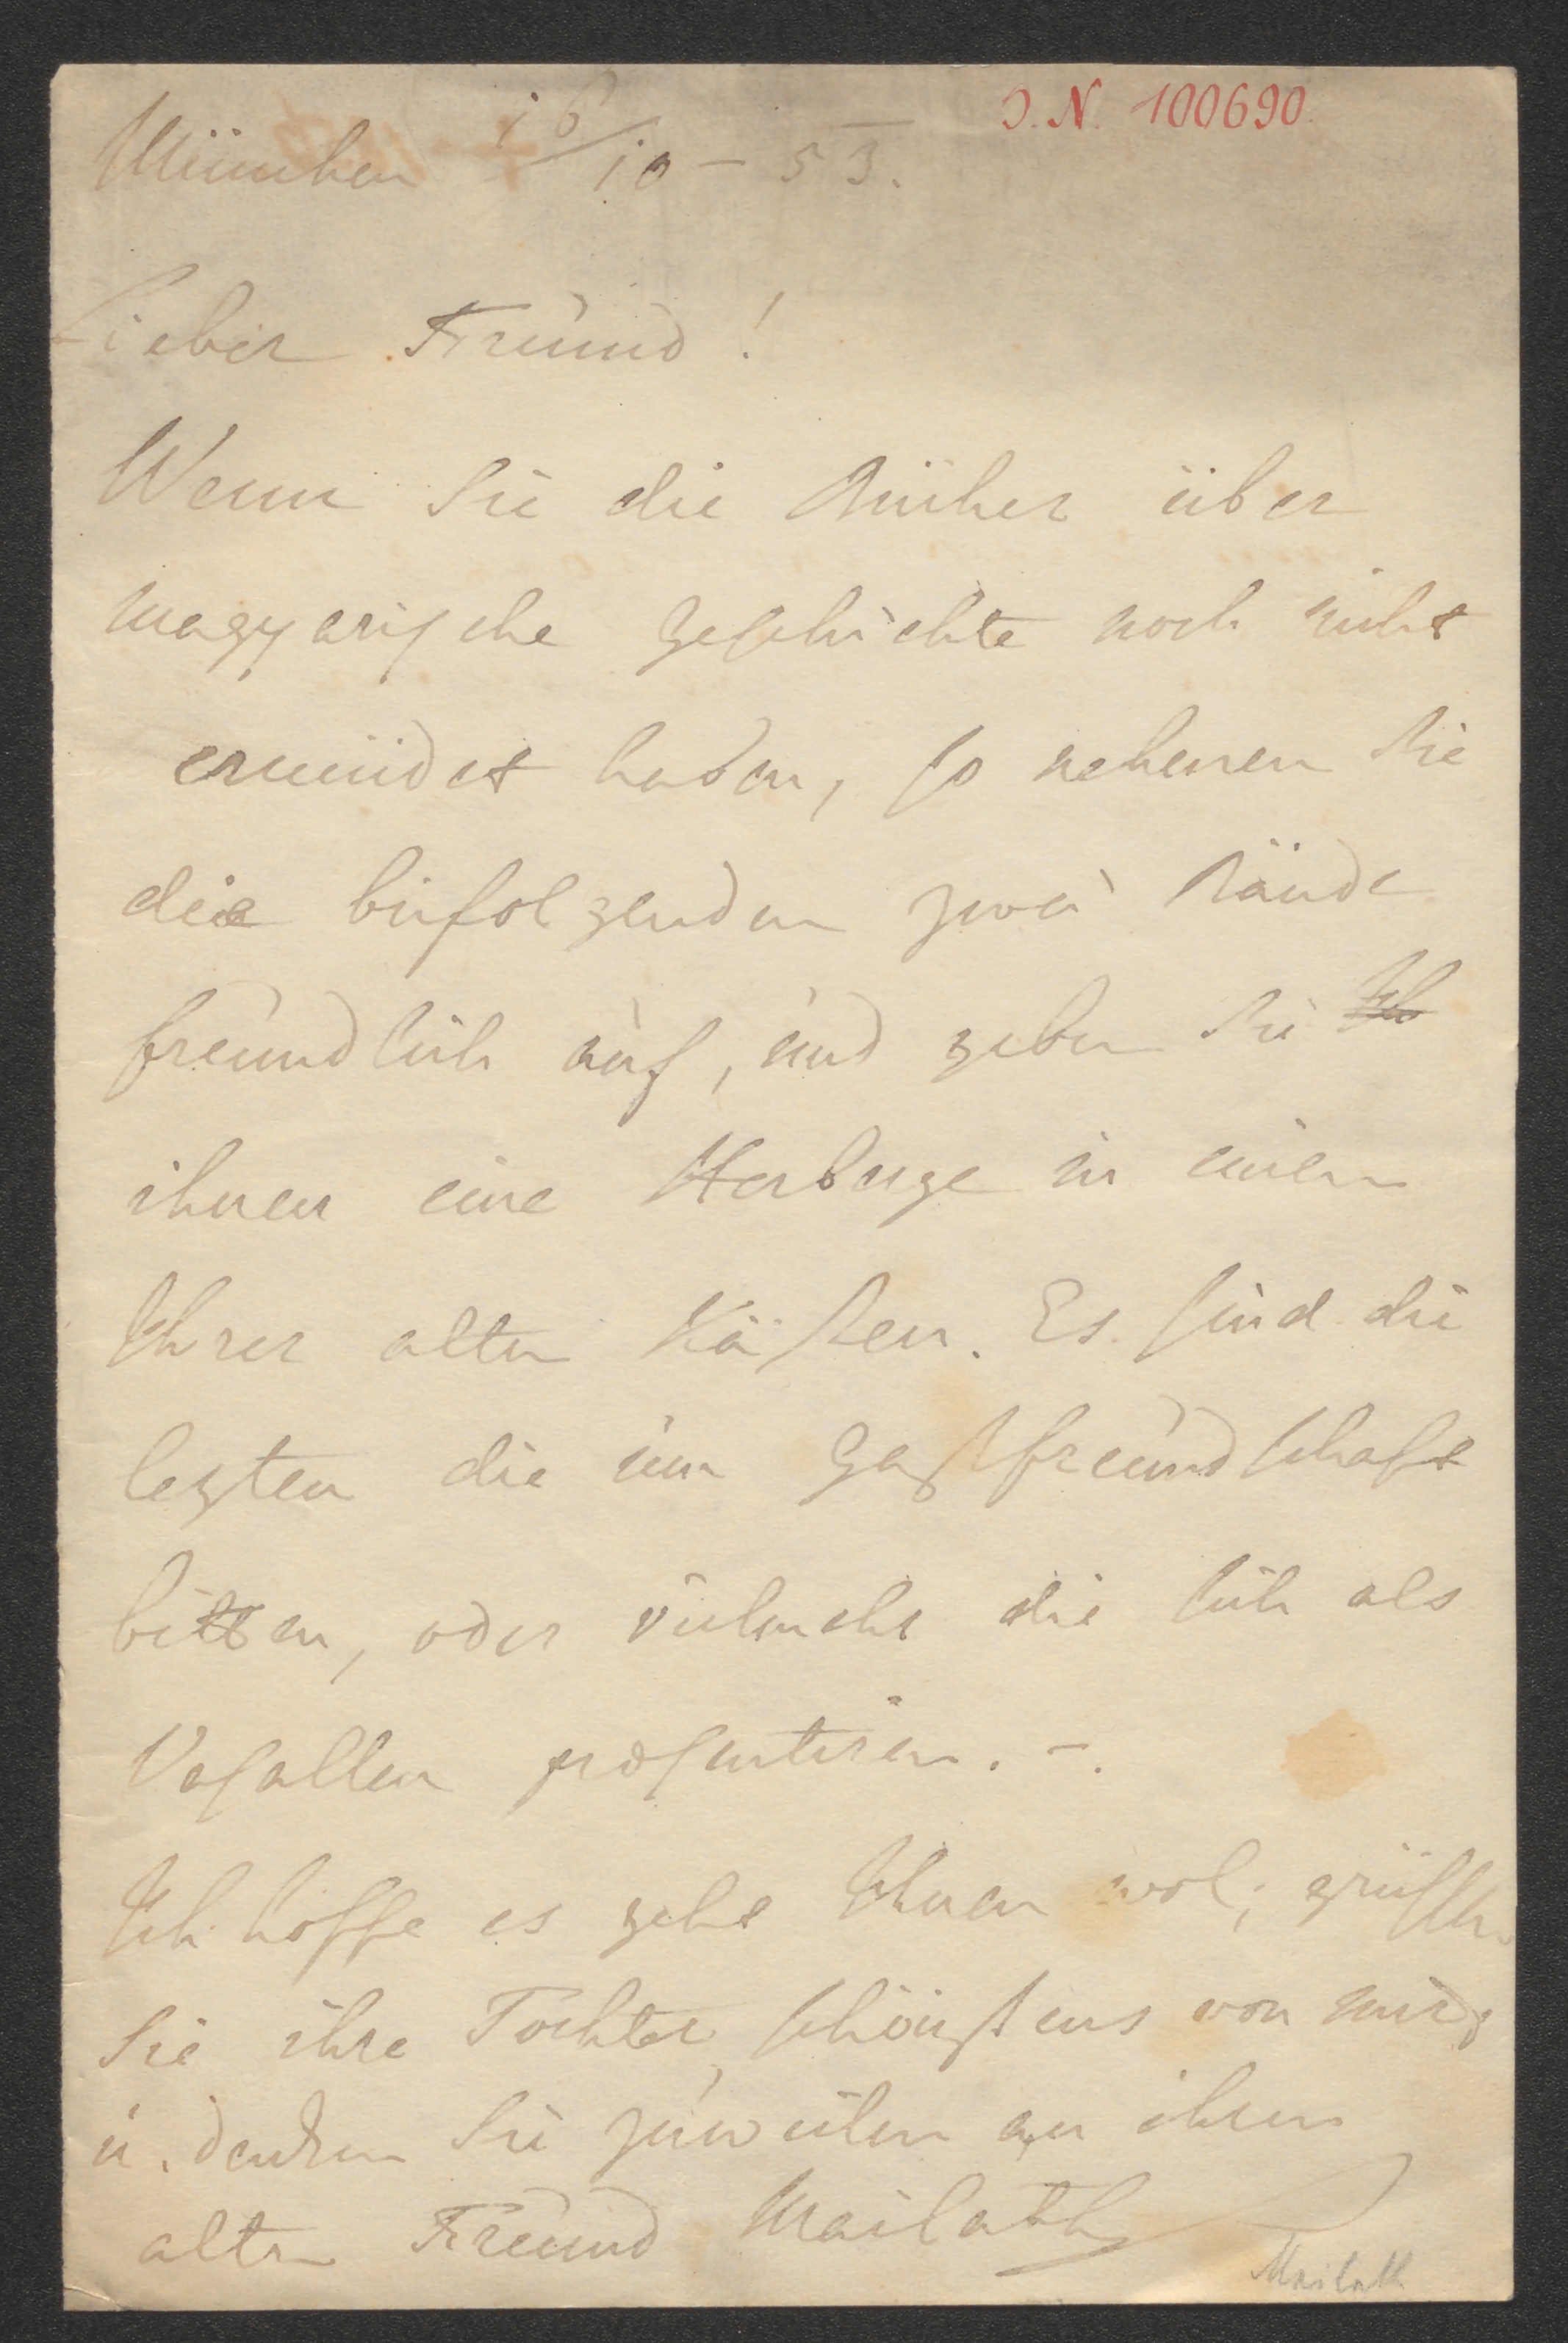 I. N. 100690.
München 16/10 – 53.
Lieber Freund!
Wenn Sie die Bücher über
magyarische Geschichte noch nicht
ermüdet haben, so nehmen Sie
die beifolgenden zwei Bände
freundlich auf, und geben Sie
ihnen eine Herberge in einem
Ihrer alten Kästen. Es sind die
lezten die um Gastfreundschaft
bitten, oder vielmehr die sich als
Vasallen präsentiren. –.
Ich hoffe es gehe Ihnen wol; grüssen
Sie ihre Tochter schönstens von mir,
u. denken Sie zuweilen an ihren
alten Freund Mailath
Mailath